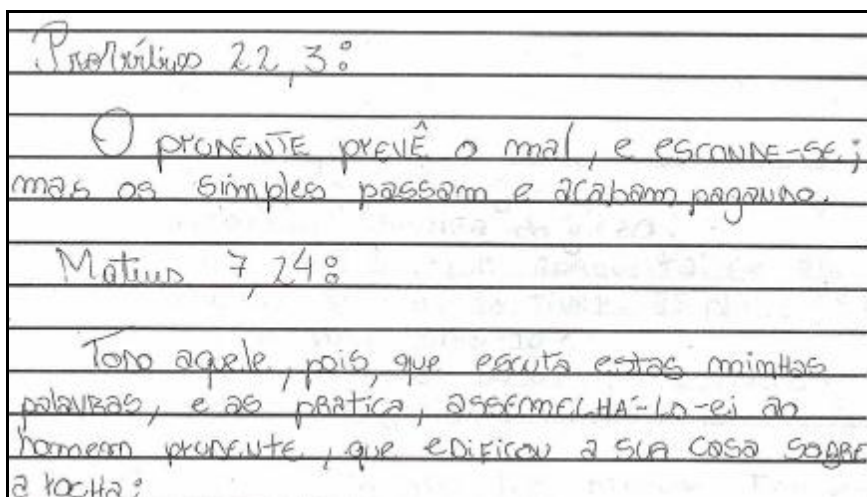 Provérbios 22,3:
O prudente prevê o mal, e esconde-se;
mas os simples passam e acabam pagando.
Mateus 7,24:
Todo aquele, pois, que escuta estas minhas
palavras, e as pratica, assemelhá-lo-ei ao
homem prudente, que edificou a sua casa sobre
a rocha;